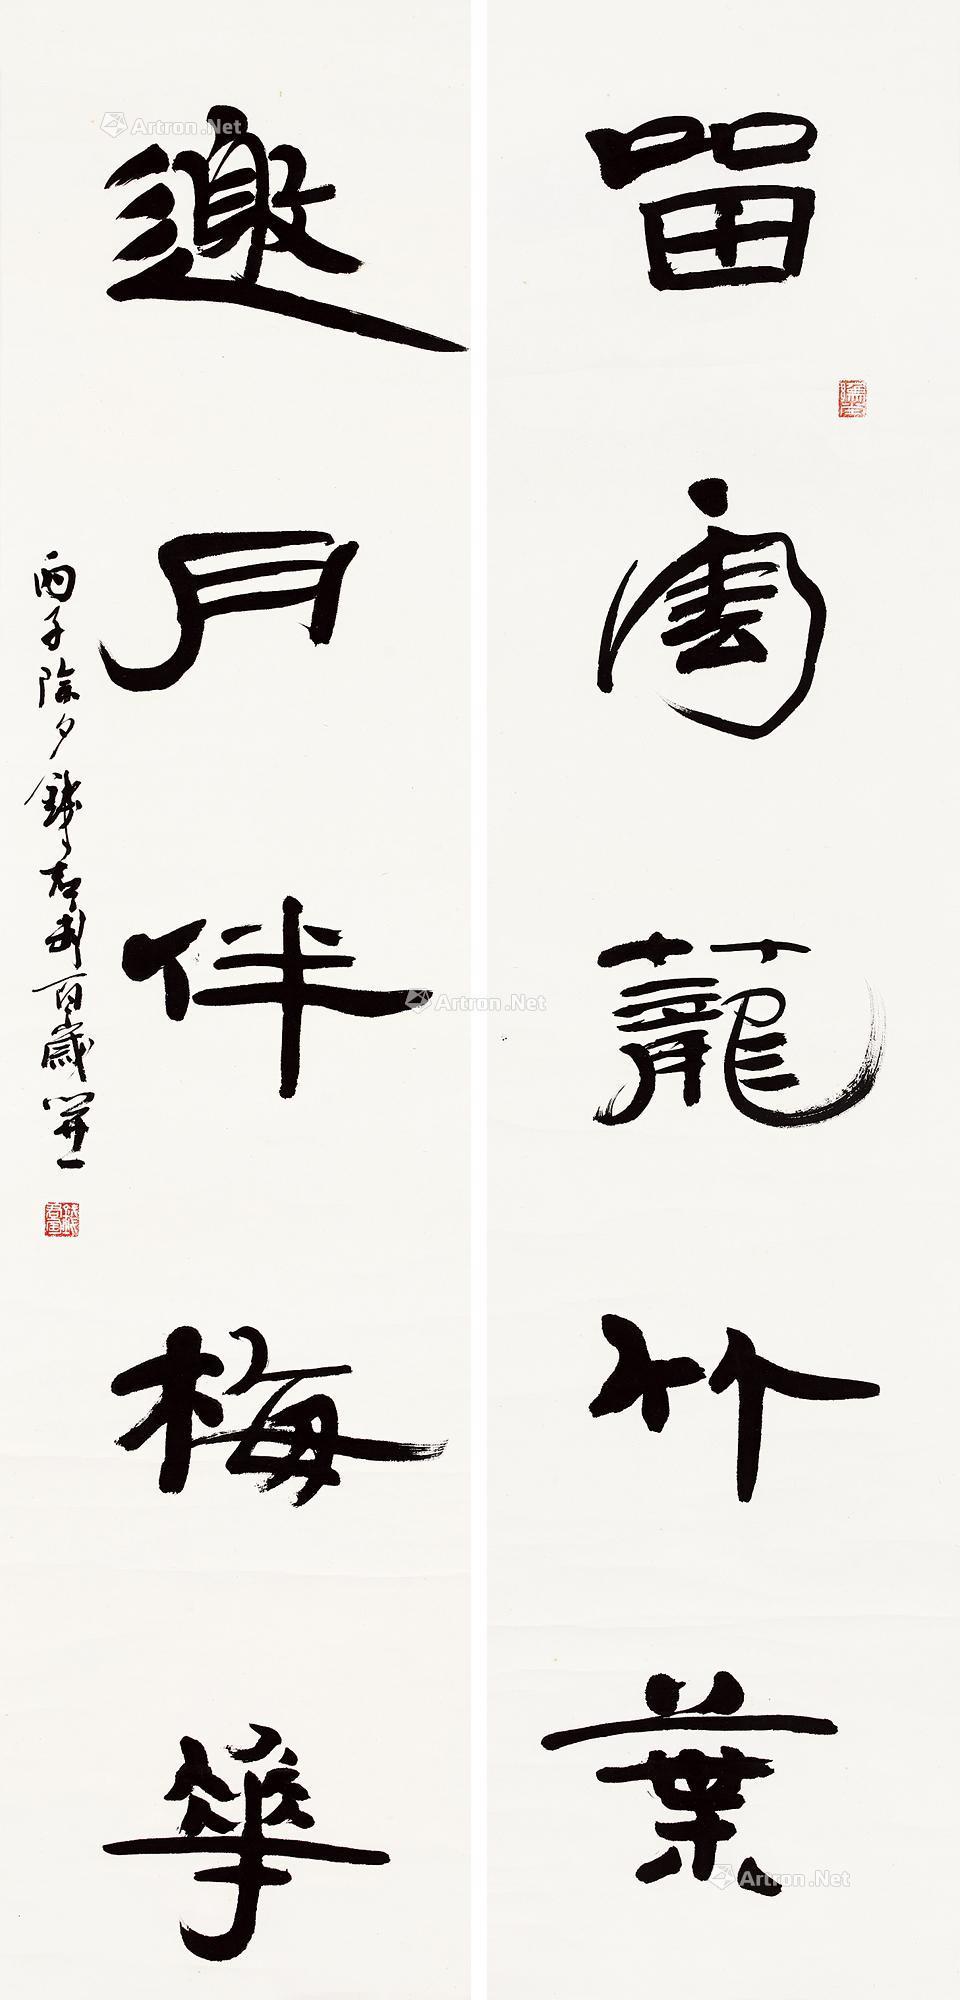 畱雲蘢竹葉
邀月伴梅華
丙子除夕錢君匋百歲開一
Artron.Net
Artron.Net
Artron.Net